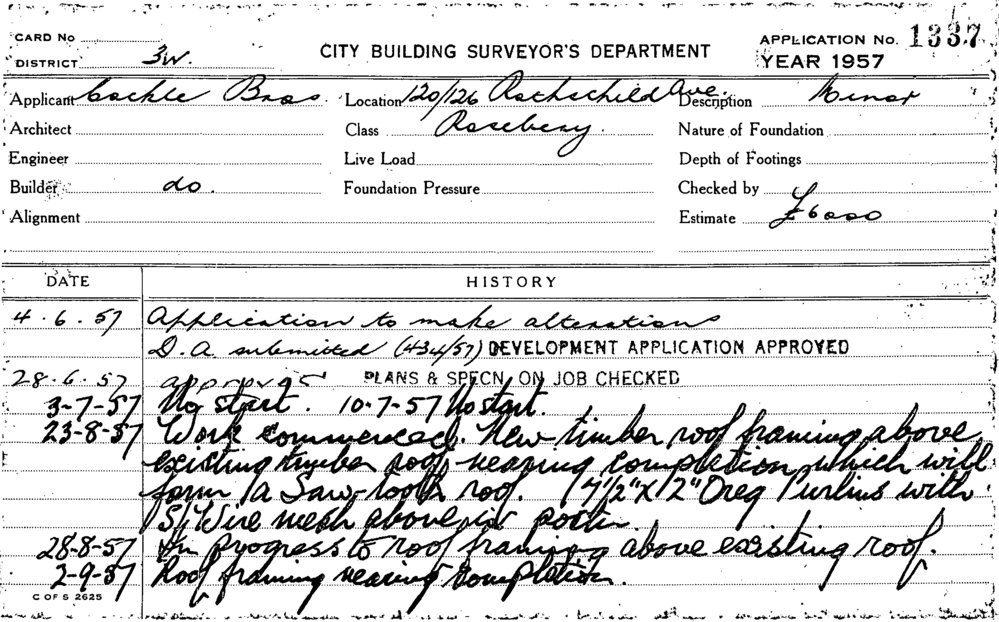 CARD No
DISTRICT 3W.
CITY BUILDING SURVEYOR'S DEPARTMENT
APPLICATION No. 1337
YEAR 1957
Applicant Cockle Bros. Location 120/126 Rothschild Ave. Description Minor
Architect Class Rosebery. Nature of Foundation
Engineer Live Load Depth of Footings
Builder do. Foundation Pressure Checked by
Alignment Estimate £6000
DATE HISTORY
4.6.57 Application to make alterations
D.A. submitted (434/57) DEVELOPMENT APPLICATION APPROVED
28.6.57 approved PLANS & SPECN. ON JOB CHECKED
3-7-57 No start. 10-7-57 No start.
23-8-57 Work commenced. New timber roof framing above
existing timber roof nearing completion which will
form a Saw-tooth roof. 7½"x2" Oreg Purlins with
Wire mesh above in
28-8-57 In progress to roof framing above existing roof.
2-9-57 Roof framing nearing completion.
C OF S 2625